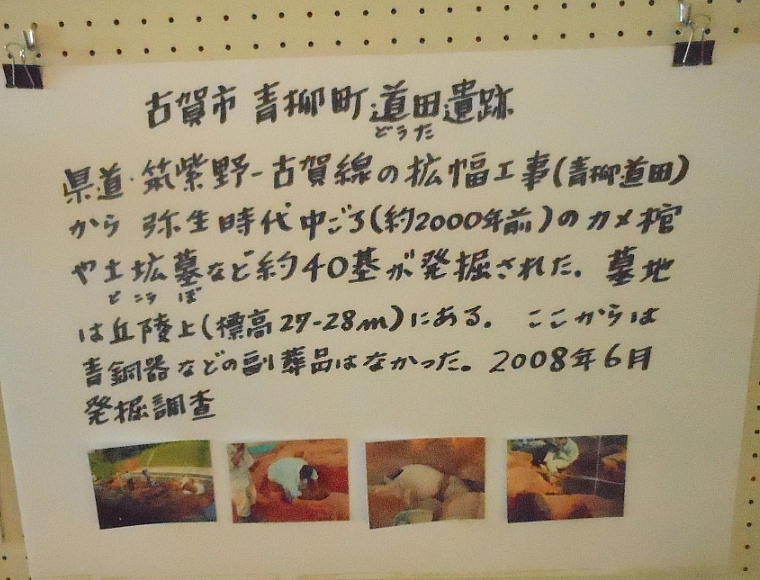 古賀市 青柳町 道田遺跡
どうた
県道・筑紫野-古賀線の拡幅工事(青柳道田)
から 弥生時代中ごろ(約2000年前)のカメ棺
や土坑墓など約40基が発掘された。墓地
どこうぼ
は丘陵上(標高27-28m)にある。ここからは
青銅器などの副葬品はなかった。2008年6月
発掘調査